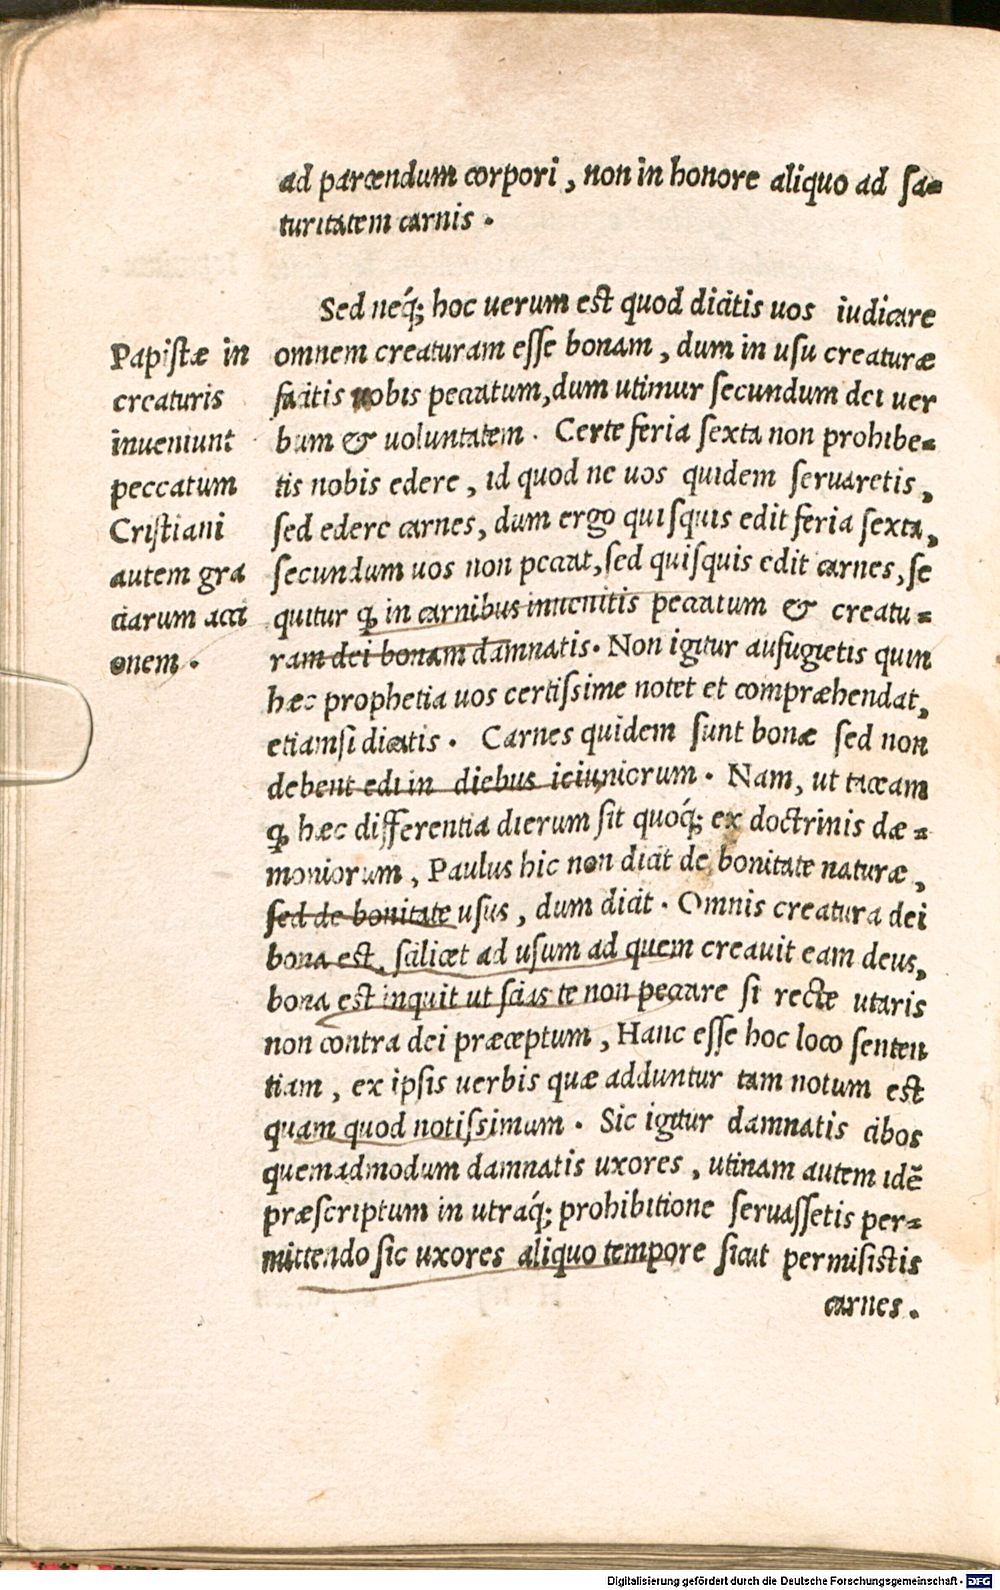 ad parcendum corpori, non in honore aliquo ad sa=
turitatem carnis.
Sed neq́; hoc uerum est quod dicitis uos iudicare
omnem creaturam esse bonam, dum in usu creaturæ
facitis nobis peccatum, dum utimur secundum dei uer
bum & uoluntatem. Certe feria sexta non prohibe=
tis nobis edere, id quod ne uos quidem seruaretis,
sed edere carnes, dum ergo quisquis edit feria sexta,
secundum uos non peccat, sed quisquis edit carnes, se
quitur ꝙ in carnibus inuenitis peccatum & creatu=
ram dei bonam damnatis. Non igitur aufugietis quin
hæc prophetia uos certissime notet et compræhendat,
etiamsi dicatis. Carnes quidem sunt bonæ sed non
debent edi in diebus ieiuniorum. Nam, ut taceam
ꝙ hæc differentia dierum sit quoq́; ex doctrinis dæ=
moniorum, Paulus hic non dicit de bonitate naturæ,
sed de bonitate usus, dum dicit. Omnis creatura dei
bona est, scilicet ad usum ad quem creauit eam deus,
bona est inquit ut scias te non peccare si recte utaris
non contra dei præceptum, Hanc esse hoc loco senten
tiam, ex ipsis uerbis quæ adduntur tam notum est
quam quod notissimum. Sic igitur damnatis cibos
quemadmodum damnatis uxores, utinam autem idẽ
præscriptum in utraq́; prohibitione seruassetis per=
mittendo sic uxores aliquo tempore sicut permisistis
carnes.
Papistæ in
creaturis
inueniunt
peccatum
Cristiani
autem gra
ciarum acti
onem.
Digitalisierung gefördert durch die Deutsche Forschungsgemeinschaft - DFG